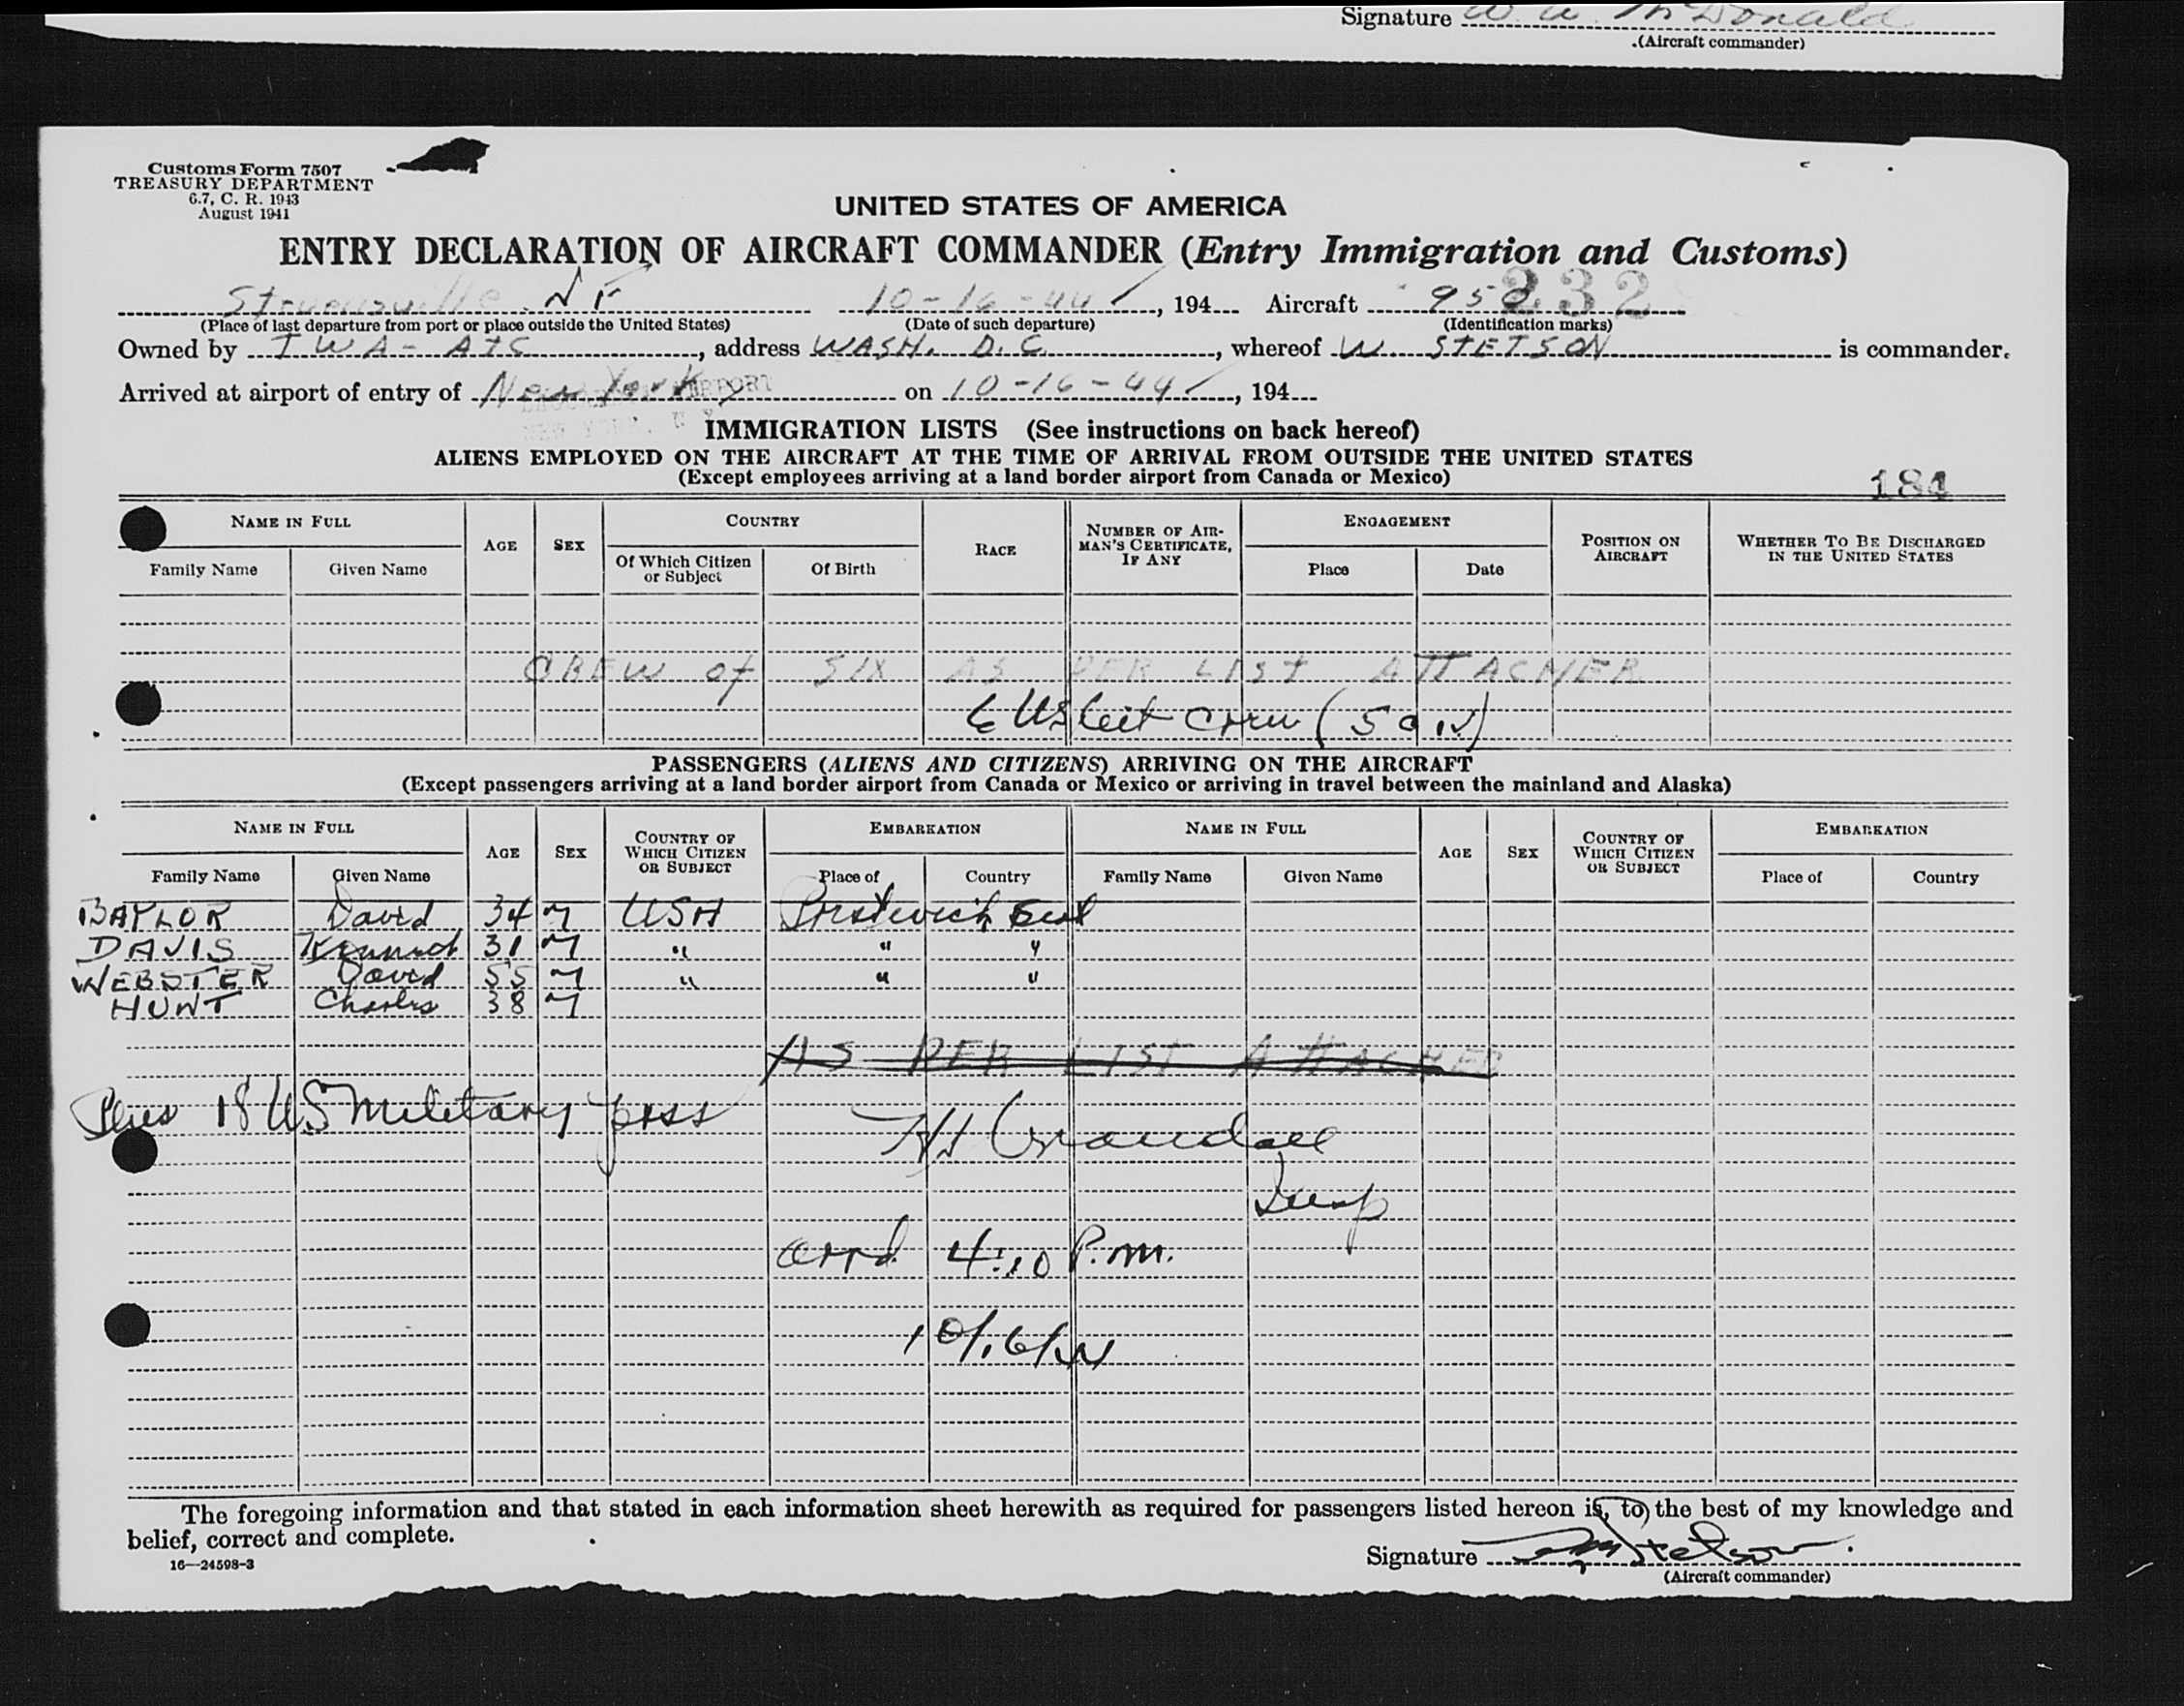 Signature W A McDonald
(Aircraft commander)
Customs Form 7507
TREASURY DEPARTMENT
6.7, C. R. 1943
August 1941
UNITED STATES OF AMERICA
ENTRY DECLARATION OF AIRCRAFT COMMANDER (Entry Immigration and Customs)
232
Stevensville NF 10-16-44, 194 Aircraft 950
(Place of last departure from port or place outside the United States) (Date of such departure) (Identification marks)
Owned by TWA - ATC, address WASH. D.C., whereof W. STETSON is commander.
Arrived at airport of entry of New York on 10-16-44, 194
IMMIGRATION LISTS (See instructions on back hereof)
ALIENS EMPLOYED ON THE AIRCRAFT AT THE TIME OF ARRIVAL FROM OUTSIDE THE UNITED STATES
(Except employees arriving at a land border airport from Canada or Mexico)
184
NAME IN FULL AGE SEX COUNTRY RACE NUMBER OF AIRMAN'S CERTIFICATE, IF ANY ENGAGEMENT POSITION ON AIRCRAFT WHETHER TO BE DISCHARGED IN THE UNITED STATES
Family Name Given Name Of Which Citizen or Subject Of Birth Place Date
CREW of SIX AS PER LIST ATTACHED
6 US Cit Crew
PASSENGERS (ALIENS AND CITIZENS) ARRIVING ON THE AIRCRAFT
(Except passengers arriving at a land border airport from Canada or Mexico or arriving in travel between the mainland and Alaska)
NAME IN FULL AGE SEX COUNTRY OF WHICH CITIZEN OR SUBJECT EMBARKATION NAME IN FULL AGE SEX COUNTRY OF WHICH CITIZEN OR SUBJECT EMBARKATION
Family Name Given Name Place of Country Family Name Given Name Place of Country
BAYLOR David 34 M USA Prestwich Scot
DAVIS Kenneth 31 M " " "
WEBSTER David 55 M " " "
HUNT Charles 38 M
AS PER LIST ATTACHED
Plus 18 US Military pass
Crandall
Insp
arrd. 4:10 P.m.
10/16/44
The foregoing information and that stated in each information sheet herewith as required for passengers listed hereon is, to the best of my knowledge and
belief, correct and complete.
16—24598-3
Signature W Stetson
(Aircraft commander)